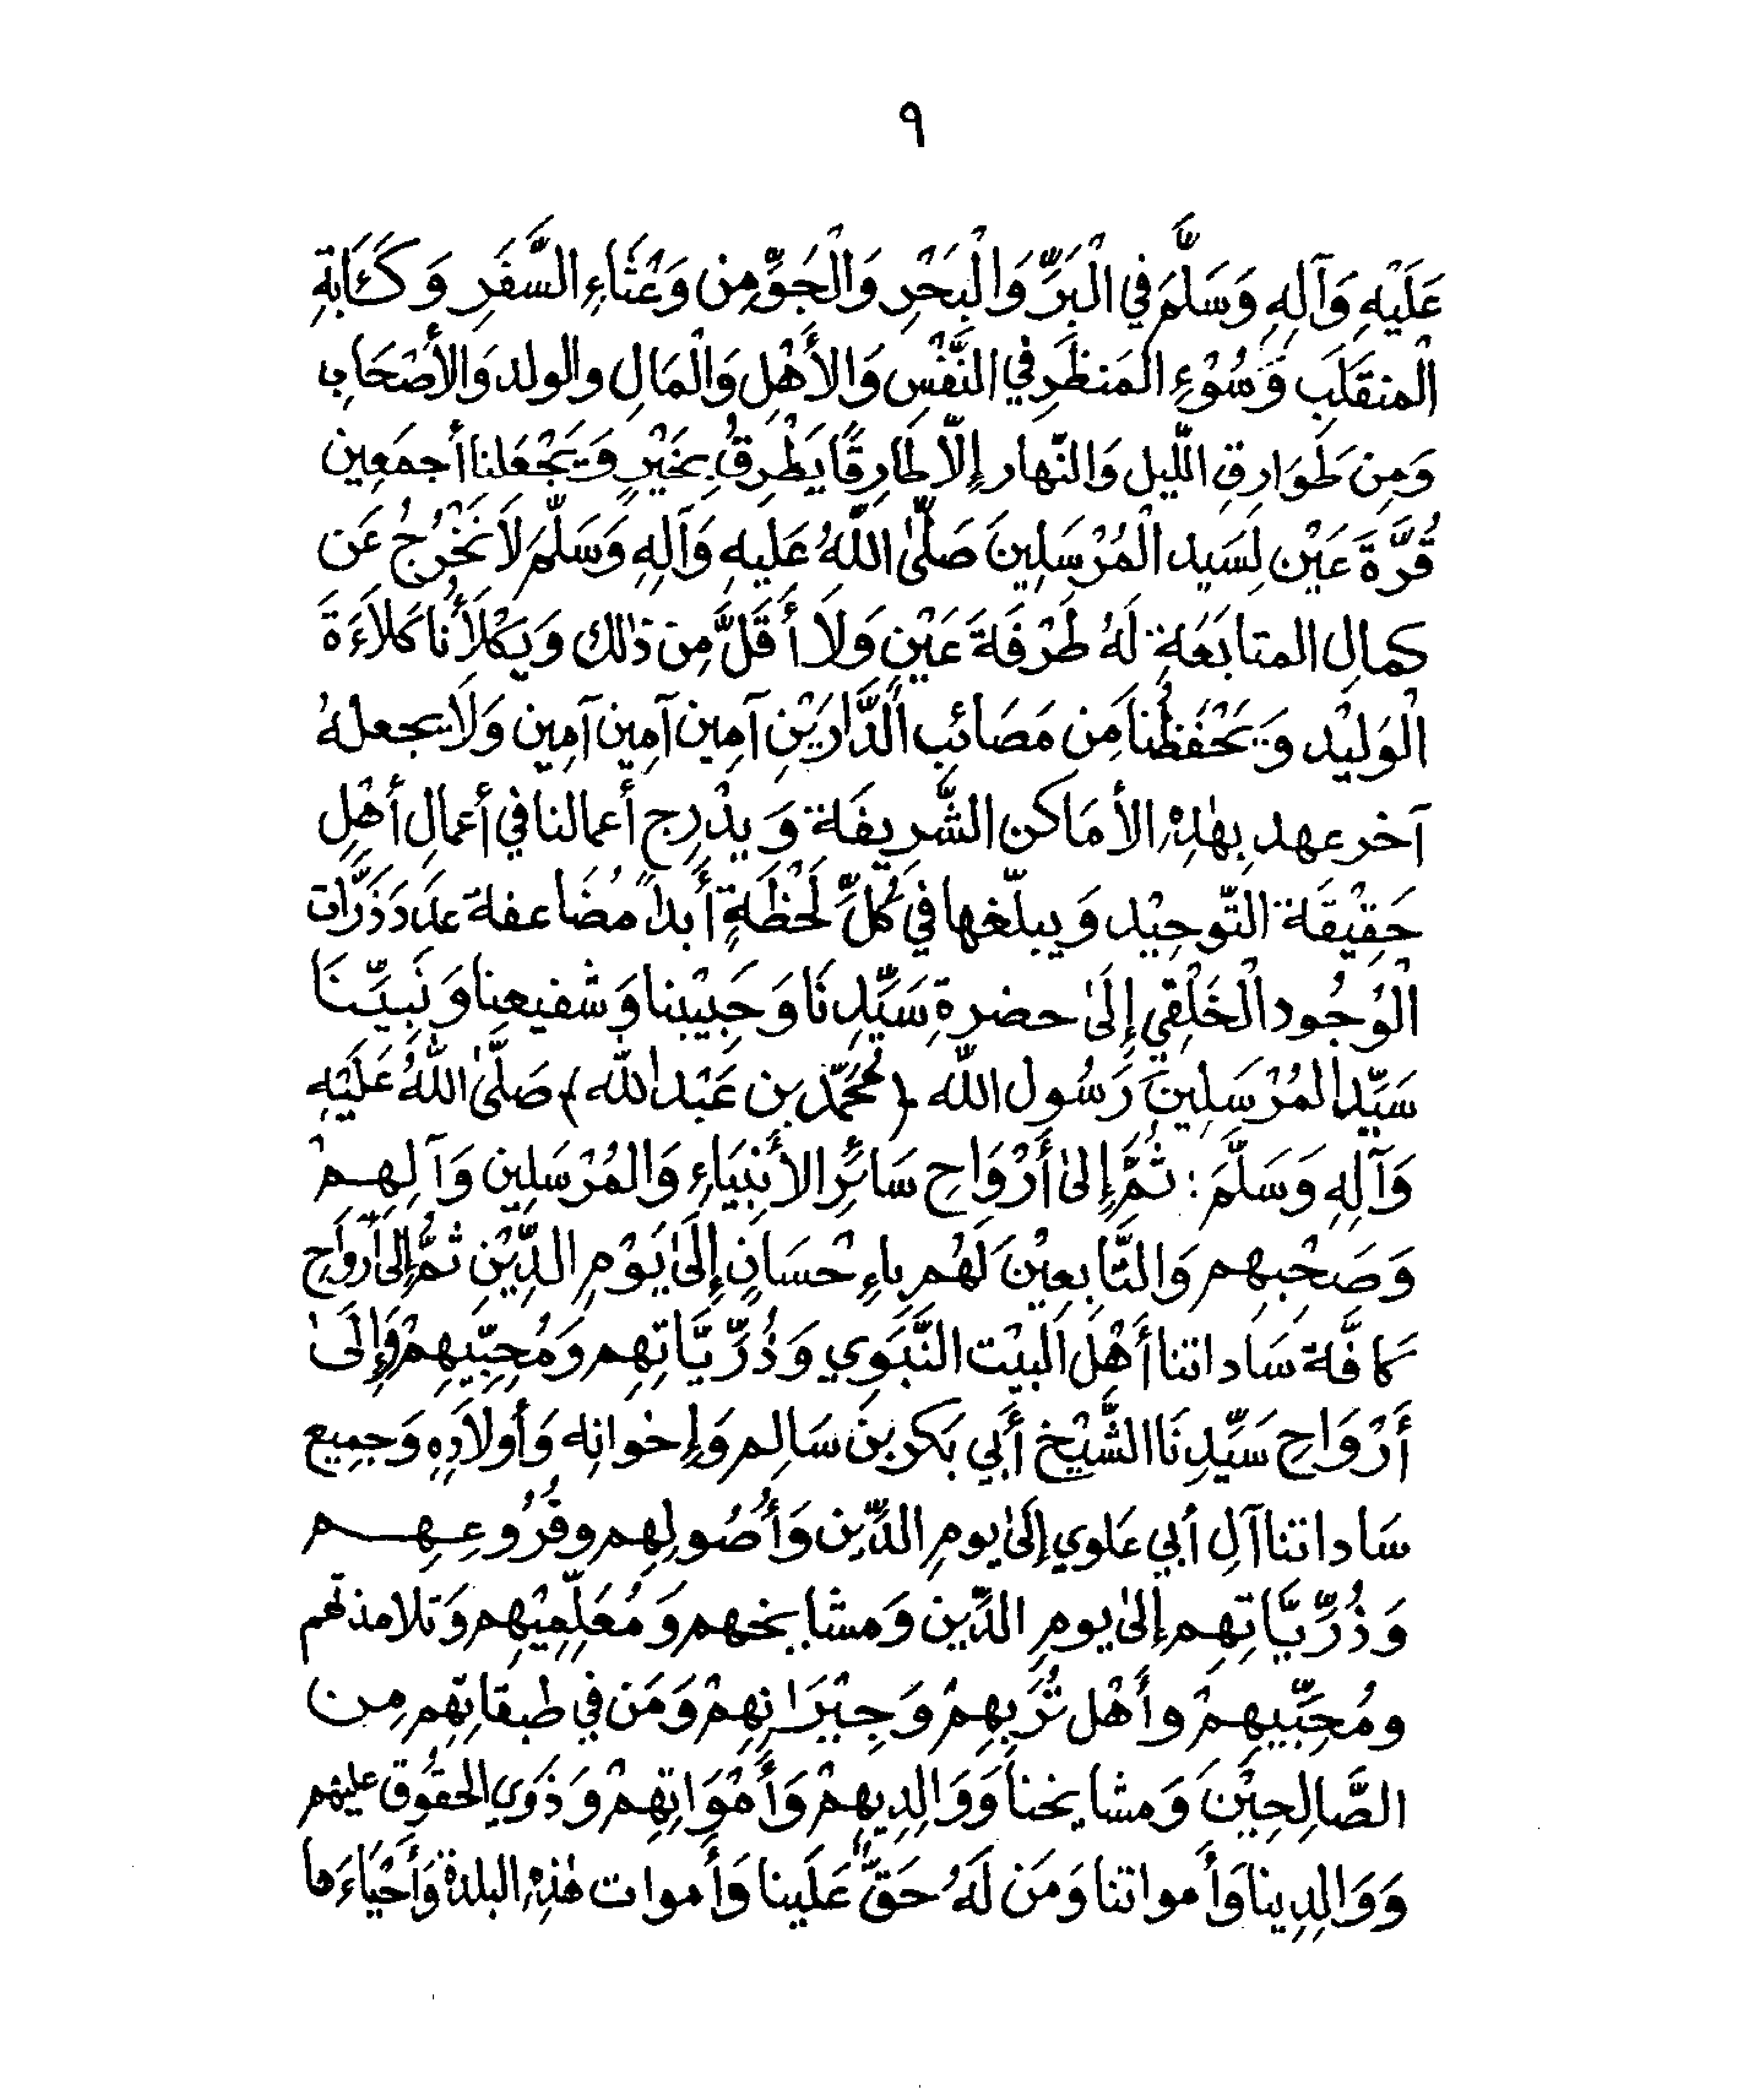 ٩
عَلَيْهِ وَآلِهِ وَسَلَّمَ في الْبَرِّ وَالْبَحْرِ وَالْجَوِّ مِن وَعْثَاءِ السَّفَرِ وَكَآبَةِ
الْمنقَلَبِ وَسُوْءِ المَنظَرِ في النَّفْسِ وَالأَهْلِ وَالْمَالِ والولد وَالأَصْحَابِ
وَمِن طَوَارِقِ اللّيل وَالنّهار إِلّا طَارِقًا يَطْرِقُ بِخَيْرٍ وَيَجْعَلنا أجمَعِين
قُرَّةَ عَيْنٍ لِسَيد الْمُرْسَلِينَ صَلّىٰ اللّٰهُ عَلَيهِ وَآلِهِ وَسَلَّمَ لاَ نَخْرُجُ عَن
كمالِ المتابَعَةِ لَهُ طَرْفَةَ عَيْنٍ وَلاَ أَقَلَّ مِن ذٰلك وَيَكْلأُنا كَلاَءَةَ
الْوَلِيْد وَيَحْفَظُنا مِن مَصَائبِ الدَّارَيْنِ آمِين آمِين آمِين وَلاَ يجعلهُ
آخر عهد بِهٰذِهِ الأمَاكن الشَّرِيفَة وَيدْرِج أعمالنا في أعمالِ أهْلِ
حَقِيْقَة التّوحِيْد وَيبلّغها في كُلِّ لَحْظَةٍ أَبداً مُضَاعفة عدَدَ ذَرَّات
الْوُجُود الْخَلْقي إِلَىٰ حضرةِ سَيِّدِنَا وَحَبِيْبنا وَشفيعنا وَنَبِيِّنَا
سَيِّد المُرْسَلِينَ رَسُول اللّٰه ﴿مُحَمَّد بن عَبْد اللّٰه﴾ صَلَّىٰ اللّٰهُ عَلَيْهِ
وَآلِهِ وَسَلَّمَ : ثُمَّ إِلىٰ أَرْوَاحِ سَائرِ الأَنبِيَاءِ وَالمُرْسَلِين وَآلِهِمْ
وَصَحْبِهِم وَالتَّابعِيْنَ لَهُم بِإِحْسَانٍ إِلَىٰ يَوْمِ الدِّيْنِ ثُمَّ إِلَىٰ أَرْوَاحِ
كافَّة سَاداتنا أَهْلَ البيْت النَّبَوِي وَذُرِّيَّاتِهِم وَمُحِبِّيهِمْ وَإِلَىٰ
أَرْوَاحِ سَيِّدِنَا الشَّيْخِ أَبي بَكر بِن سَالِم وَإِخوانِه وَأَولاَدِهِ وَجميع
سَاداتنا آلِ أَبي عَلوي إِلَىٰ يومِ الدِّين وَأُصُولِهِم وفُرُوعِهِم
وَذُرِّيَّاتِهِم إِلىٰ يومِ الدِّين وَمشايخهم وَمُعَلِّمِيْهِم وَتلامذتهم
ومُحِبِّيهِمْ وأَهْل تُرَبِهِمْ وَجِيْرَانِهِمْ وَمَن في طبقاتِهِم مِن
الصَّالِحِيْنَ وَمشايخنا وَوَالِدِيهِمْ وَأَمْوَاتِهِمْ وَذَوِي الحقُوق عليهم
وَوَالِدِينا وَأَمواتنا وَمَن لَهُ حَقٌّ عَلَينا وَأَموات هٰذِهِ البلدة وَأَحْيَاءَها